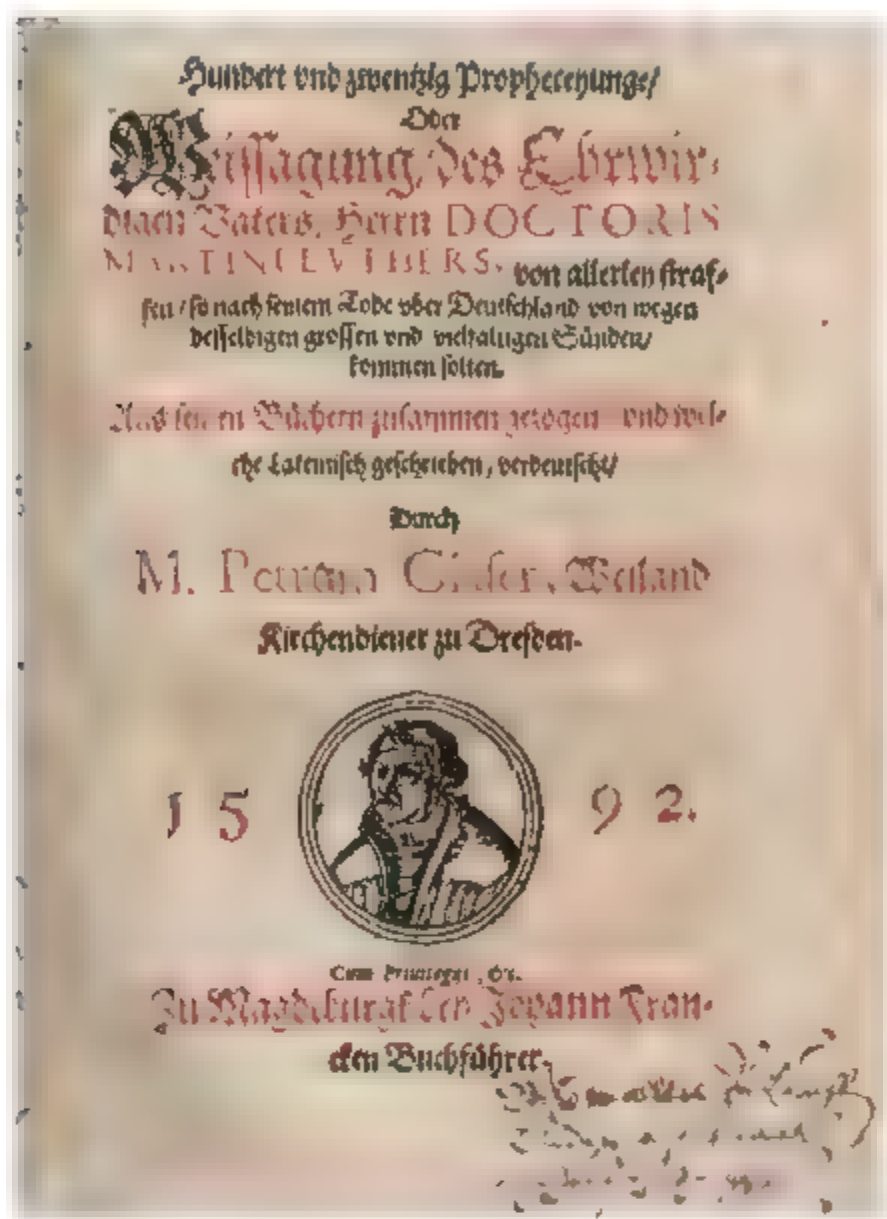 Hundert vnd zwentzig Propheceyunge/
Oder
Weissagung, des Ehrwir-
digen Vaters, Herrn DOCTORIS
MARTINI LVTHERS, von allerley straf-
fen / so nach seinem Tode vber Deutschland von wegen
desselbigen grossen vnd vielfaltigen Sünden/
kommen solten.
Aus seinen Büchern zusammen gezogen vnd wel-
che Lateinisch geschrieben, verdeutscht/
Durch
M. Petrum Glaser, Weiland
Kirchendiener zu Dresden.
1592.
Cum Privilegio, &c.
Zu Magdeburgk bey Johann Fran-
cken Buchführer.